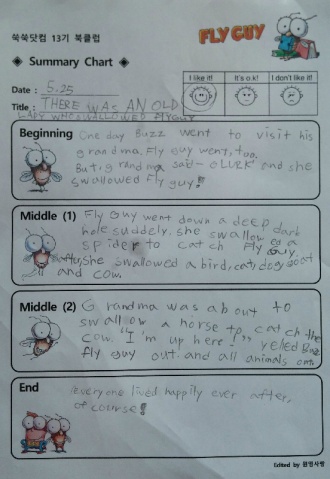 쑥쑥닷컴 13기 북클럽
FLY GUY
◈ Summary Chart ◈
I like it! It's o.k! I don't like it!
Date : 5.25
Title : THERE WAS AN OLD
LADY WHO SWALLOWED FLY GUY
Beginning One day Buzz went to visit his
grandma. Fly guy went, too.
But, grandma said- and she
swallowed Fly
guy!
Middle (1) Fly Guy went down a deep
hole suddely. she swallow dark
spider to catch Fly Guy
after, she swallowed a bird, cat, dog, goat
and cow.
Middle (2) Grandma was about to
swallow a horse to catch the
cow. "I'm up here!" yelled Buzz
fly guy out and all animals out.
End Everyone lived happily ever after,
of course!
Edited by 원영사랑